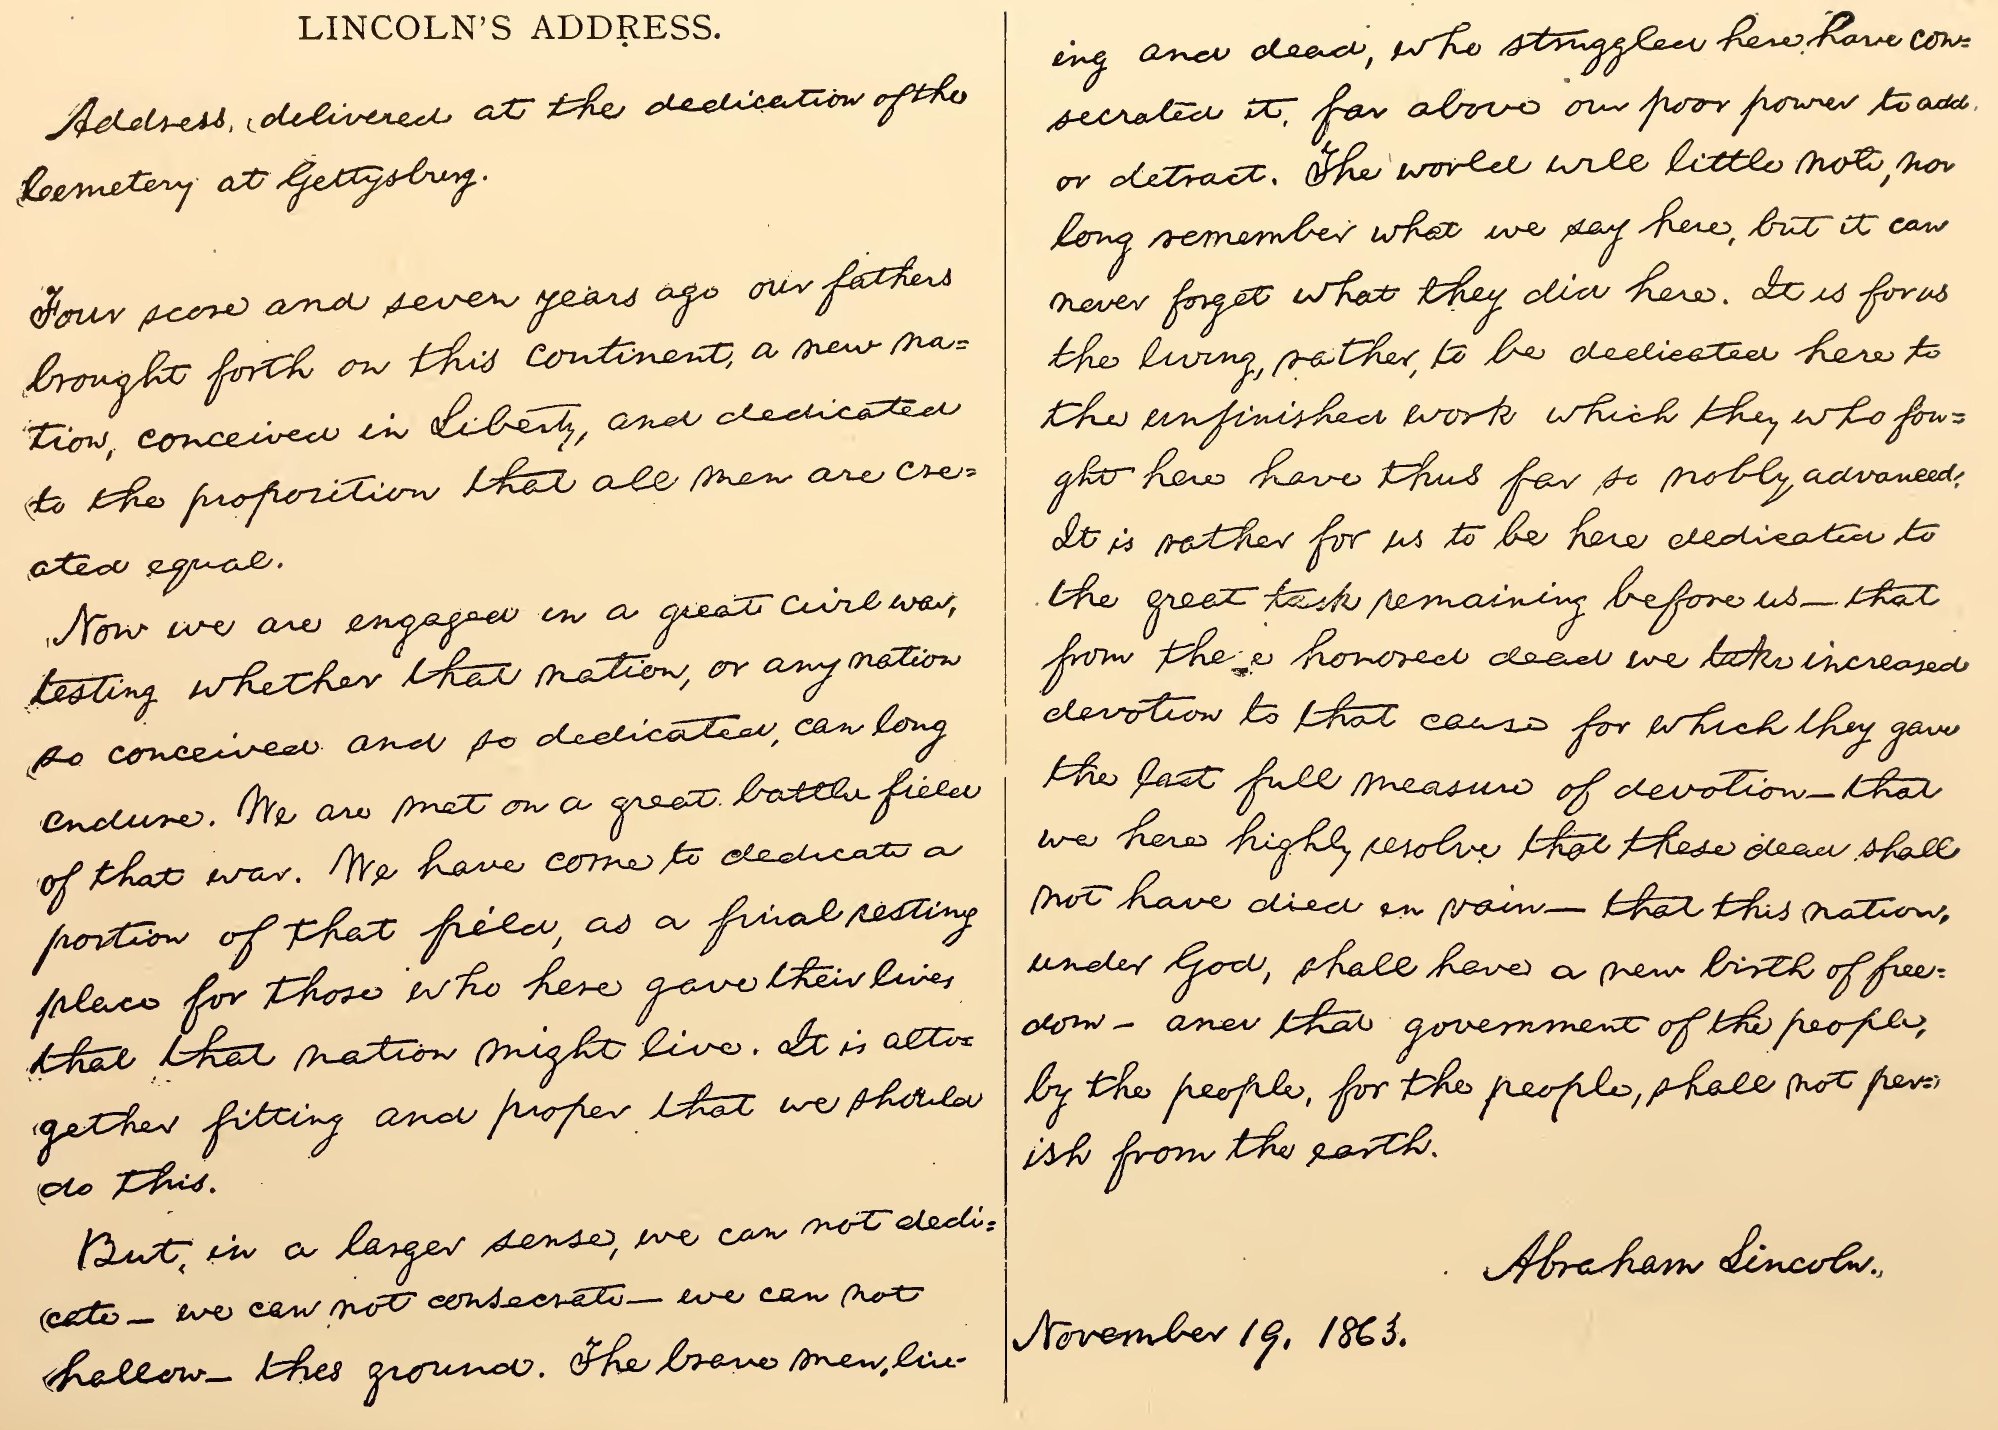 LINCOLN'S ADDRESS.
Address delivered at the dedication of the
Cemetery at Gettysburg.
Four score and seven years ago our fathers
brought forth on this continent, a new na=
tion, conceived in Liberty, and dedicated
to the proposition that all men are cre=
ated equal.
Now we are engaged in a great civil war,
testing whether that nation, or any nation
so conceived and so dedicated, can long
endure. We are met on a great battle field
of that war. We have come to dedicate a
portion of that field, as a final resting
place for those who here gave their lives
that that nation might live. It is alto=
gether fitting and proper that we should
do this.
But, in a larger sense, we can not dedi=
cate — we can not consecrate — we can not
hallow — this ground. The brave men, liv-
ing and dead, who struggled here have con=
secrated it, far above our poor power to add
or detract. The world will little note, nor
long remember what we say here, but it can
never forget what they did here. It is for us
the living, rather, to be dedicated here to
the unfinished work which they who fou=
ght here have thus far so nobly advanced.
It is rather for us to be here dedicated to
the great task remaining before us — that
from these honored dead we take increased
devotion to that cause for which they gave
the last full measure of devotion — that
we here highly resolve that these dead shall
not have died in vain — that this nation,
under God, shall have a new birth of free=
dom — and that government of the people,
by the people, for the people, shall not per=
ish from the earth.
Abraham Lincoln.
November 19, 1863.